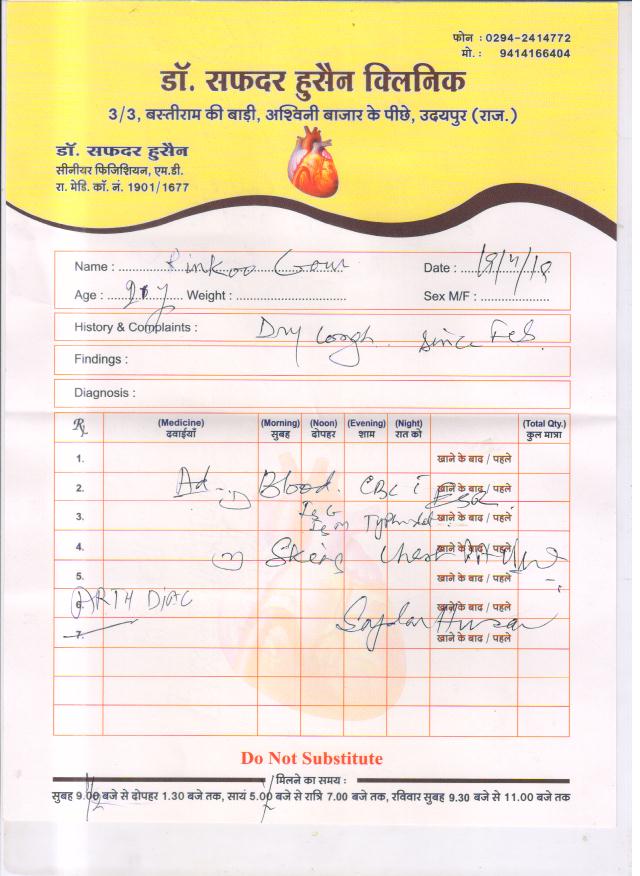 फोन : 0294-2414772
मो. : 9414166404
डॉ. सफदर हुसैन क्लिनिक
3/3, बस्तीराम की बाड़ी, अश्विनी बाजार के पीछे, उदयपुर (राज.)
डॉ. सफदर हुसैन
सीनीयर फिजिशियन, एम.डी.
रा. मेडि. कॉ. नं. 1901/1677
Name : Rinkoo Gour Date :
Age : Weight : Sex M/F :
History & Complaints : Dry Cough. Since Feb.
Findings :
Diagnosis :
Rx (Medicine) (Morning) (Noon) (Evening) (Night) (Total Qty.)
दवाईयाँ सुबह दोपहर शाम रात को कुल मात्रा
1. खाने के बाद / पहले
2. Ad- 1) Blood. CBC ESR. खाने के बाद / पहले
IgG
3. IgM Typhidot खाने के बाद / पहले
4. 2) Chest खाने के बाद / पहले
5. खाने के बाद / पहले
6. ARTH DIAC खाने के बाद / पहले
7. Safdar Husain खाने के बाद / पहले
Do Not Substitute
मिलने का समय :
सुबह 9.00 बजे से दोपहर 1.30 बजे तक, सायं 5.00 बजे से रात्रि 7.00 बजे तक, रविवार सुबह 9.30 बजे से 11.00 बजे तक